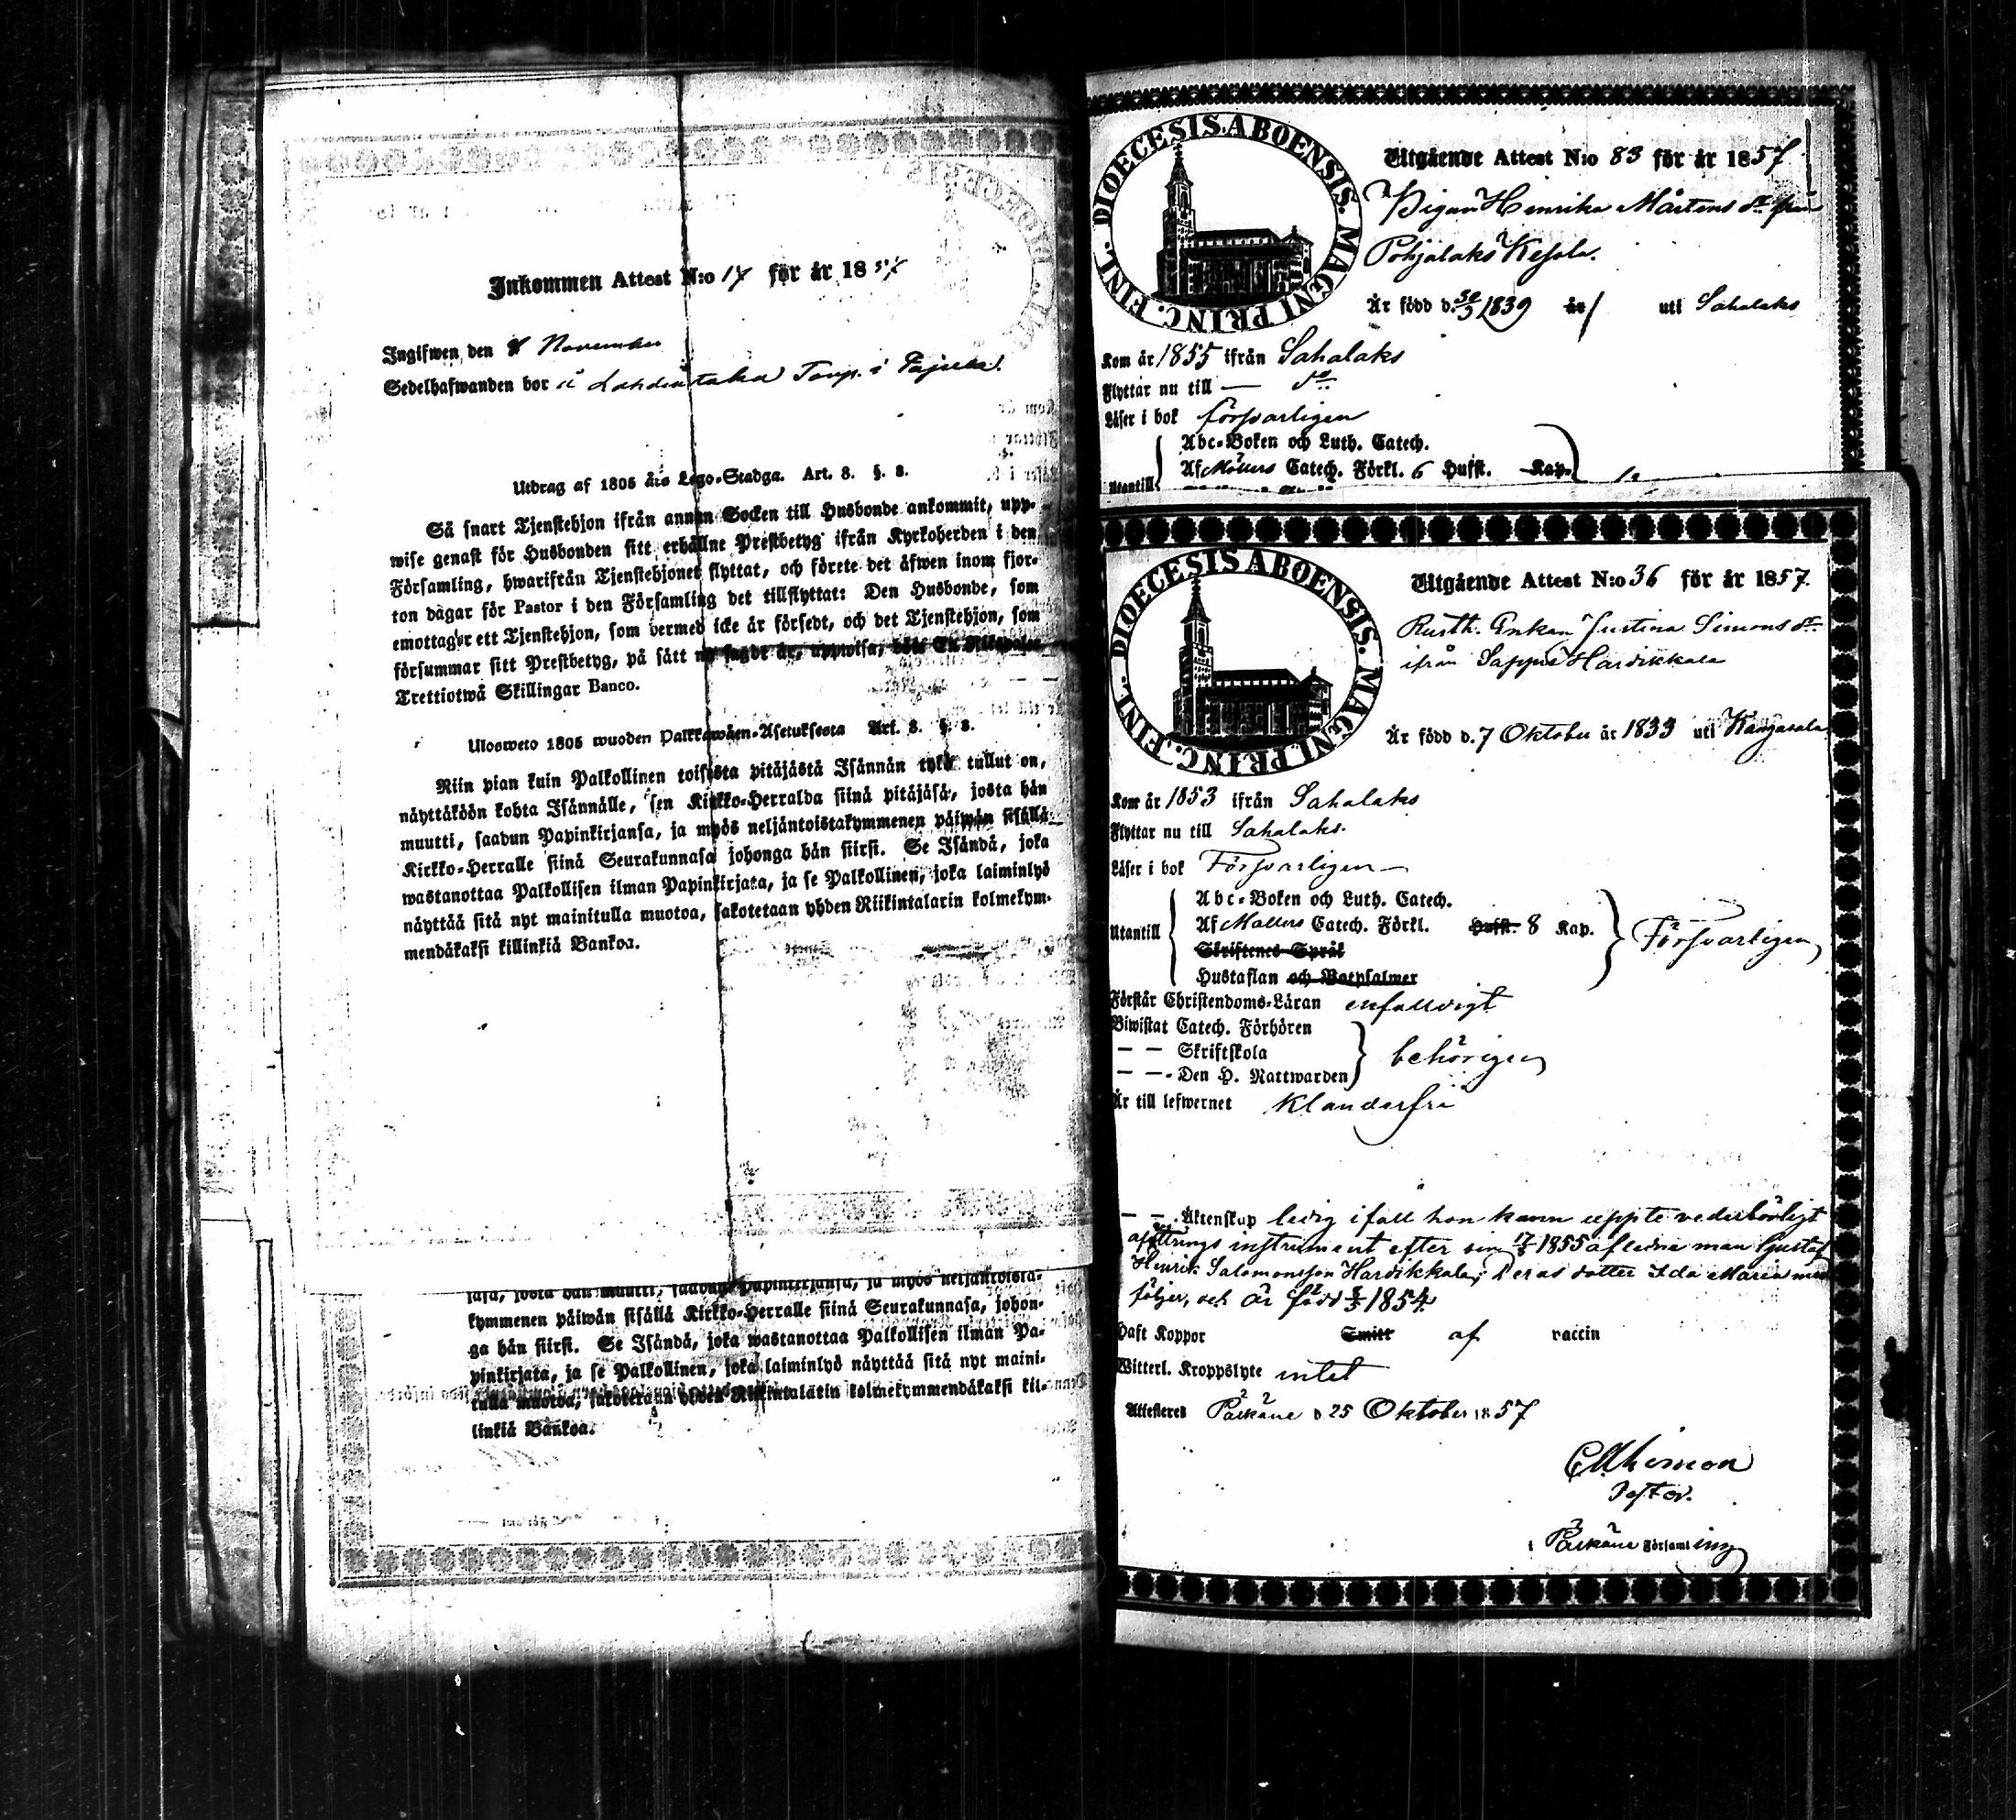 Inkommen Attest N:o för år 18
Ingifwen den November
Sedelhafwanden bor i Torp. i
Utdrag af 1805 års Lego-Stadga. Art. 8. §. 8.
Så snart Tjenstehjon ifrån annan Socken till Husbonde ankommit, upp-
wise genast för Husbonden sitt erhållne Prestbetyg ifrån Kyrkoherden i den
Församling, hwarifrån Tjenstehjonet flyttat, och förete det äfwen inom fjor-
ton dagar för Pastor i den Församling det tillflyttat: Den Husbonde, som
emottager ett Tjenstehjon, som dermed icke är försedt, och det Tjenstehjon, som
försummar sitt Prestbetyg, på sätt nu sagdt är, uppwisa, böte En Riksdaler
Trettiotwå Skillingar Banco.
Ulosweto 1805 wuoden Palkkawäen-Asetuksesta Art. 8. §. 8.
Niin pian kuin Palkollinen toisesta pitäjästä Isännän tykö tullut on,
näyttäköön kohta Isännälle, sen Kirkko-Herralda siinä pitäjäsä, josta hän
muutti, saadun Papinkirjansa, ja myös neljäntoistakymmenen päiwän sisällä
Kirkko-Herralle siinä Seurakunnasa johonga hän siirsi. Se Isändä, joka
wastanottaa Palkollisen ilman Papinkirjata, ja se Palkollinen, joka laiminlyö
näyttää sitä nyt mainitulla muotoa, sakotetaan yhden Riikintalarin kolmekym-
mendäkaksi killinkiä Bankoa.
jäsä, josta hän muutti, saadun Papinkirjansa, ja myös neljäntoista-
kymmenen päiwän sisällä Kirkko-Herralle siinä Seurakunnasa, johon-
ga hän siirsi. Se Isändä, joka wastanottaa Palkollisen ilman Pa-
pinkirjata, ja se Palkollinen, joka laiminlyö näyttää sitä nyt maini-
tulla muotoa, sakotetaan yhden Riikintalarin kolmekymmendäkaksi kil-
linkiä Bankoa.
DIOECESIS ABOENSIS. MAGNI PRINC. FINL.
Utgående Attest N:o 83 för år 1857
Pigan Henrika Mårtens dr från
Pohjalaks Kesola.
Är född d. 30/3 1839 år uti Sahalaks
Kom år 1855 ifrån Sahalaks
Flyttar nu till — do
Läser i bok försvarligen
Abc-Boken och Luth. Catech.
Af Möllers Catech. Förkl. 6 Hufst. Kap.
Utantill
DIOECESIS ABOENSIS. MAGNI PRINC. FINL.
Utgående Attest N:o 36 för år 1857.
Rusth. Enkan Justina Simons dr
ifrån Sappe Hardikkala
Är född d. 7 Oktober år 1833 uti Kangasala
Kom år 1853 ifrån Sahalaks
Flyttar nu till Sahalaks.
Läser i bok Försvarligen
Abc-Boken och Luth. Catech.
Utantill Af Möllers Catech. Förkl. Hufst. 8 Kap. Försvarligen
Skriftenes Språk
Hustaflan och Botpsalmer
Förstår Christendoms-Läran enfalldigt
Biwistat Catech. Förhören
— — Skriftskola behörigen
— — Den H. Nattwarden
Är till lefwernet klanderfri
— — Äktenskap ledig ifall hon kann uppte vederbörligt
afvittrings instrument efter sin 17/5 1855 aflidne man Gustaf
Henrik Salomonsson Hardikkala; deras dotter Ida Maria med
följer, och är född 1854
Haft Koppor Smitt af vaccin
Witterl. Kroppslyte intet
Attesteres Pälkäne d. 25 Oktober 1857
Pastor.
i Pälkäne Församling